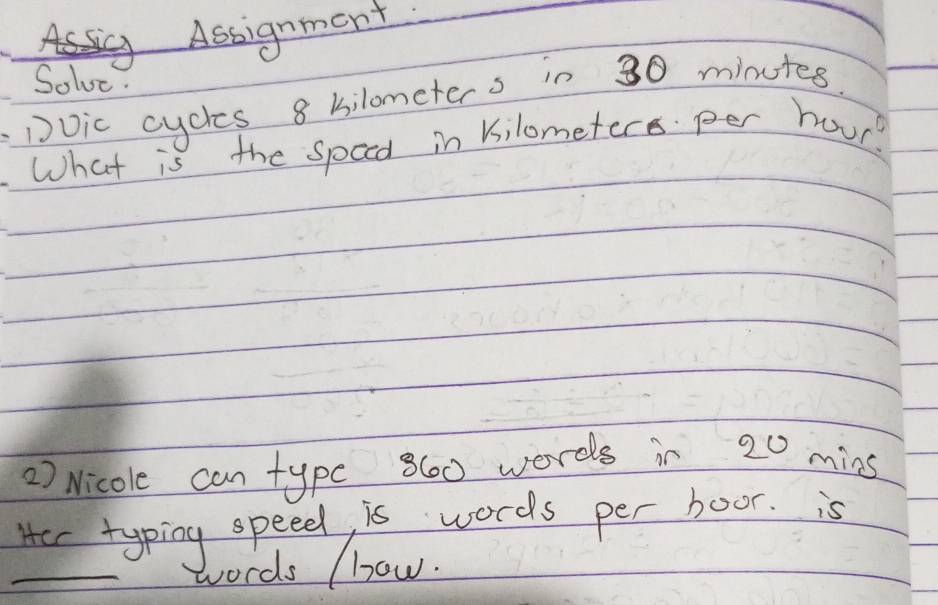 Assig Assignment.
Solve.
1) Vic cycles 8 kilometers in 30 minutes.
What is the speed in Kilometers per hour?
2) Nicole can type 360 words in 20 mins
Her typing speed is words per hoor. is
____ words / how.